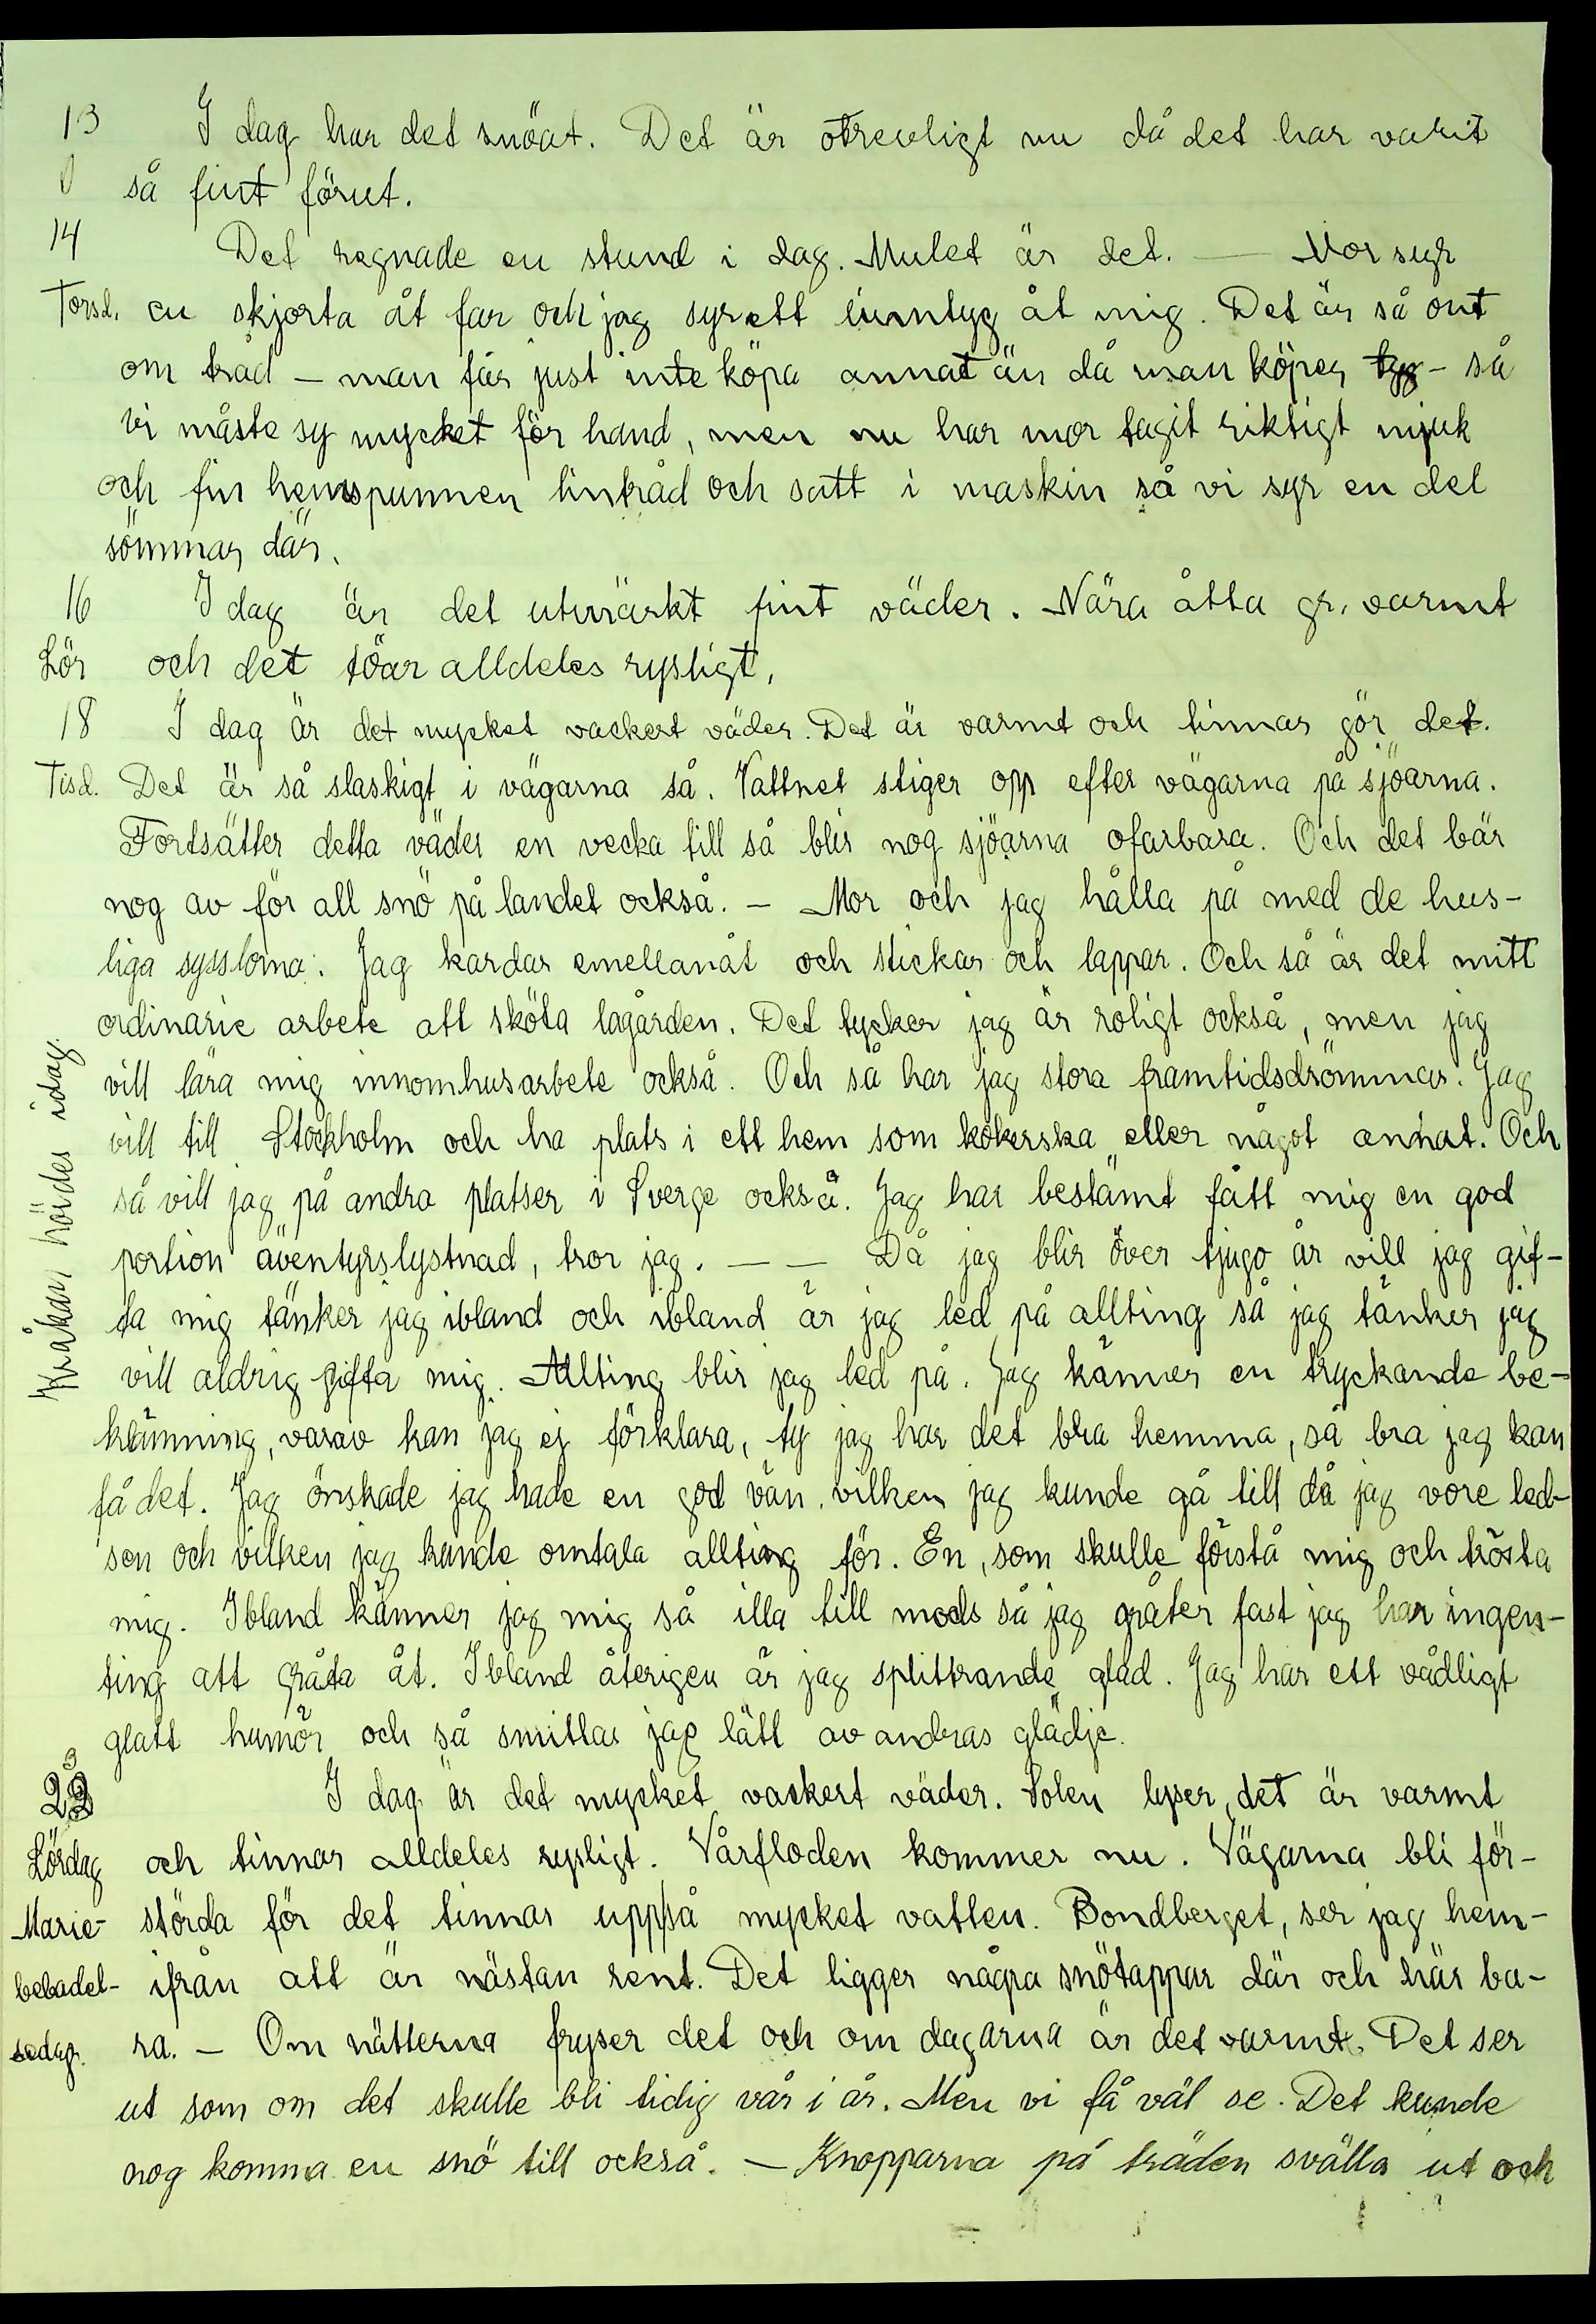 13 I dag har det snöat. Det är otrevligt nu då det har varit
0 så fint förut.
14 Det regnade en stund i dag. Mulet är det. — Mor syr
Torsd. en skjorta åt far och jag syr ett linntyg åt mig. Det är så ont
om tråd – man får just inte köpa annat än då man köper tyg – så
vi måste sy mycket för hand, men nu har mor tagit riktigt mjuk
och fin hemspunnen lintråd och satt i maskin så vi syr en del
sömmar där.
16 I dag är det utmärkt fint väder. Nära åtta gr. varmt
Lör och det töar alldeles rysligt.
18 I dag är det mycket vackert väder. Det är varmt och tinnar gör det.
Tisd. Det är så slaskigt i vägarna så. Vattnet stiger opp efter vägarna på sjöarna.
Fortsätter detta väder en vecka till så blir nog sjöarna ofarbara. Och det bär
nog av för all snö på landet också. – Mor och jag hålla på med de hus-
liga sysslorna. Jag kardar emellanåt och stickar och lappar. Och så är det mitt
ordinarie arbete att sköta lagården. Det tycker jag är roligt också, men jag
vill lära mig innomhusarbete också. Och så har jag stora framtidsdrömmar. Jag
vill till Stockholm och ha plats i ett hem som kokerska eller något annat. Och
så vill jag på andra platser i Sverge också. Jag har bestämt fått mig en god
portion äventyrslystnad, tror jag. — — Då jag blir över tjugo år vill jag gif-
ta mig tänker jag ibland och ibland är jag led på allting så jag tänker jag
vill aldrig gifta mig. Allting blir jag led på. Jag känner en tryckande be-
klämning, varav kan jag ej förklara, ty jag har det bra hemma, så bra jag kan
få det. Jag önskade jag hade en god vän, vilken jag kunde gå till då jag vore led-
sen och vilken jag kunde omtala allting för. En, som skulle förstå mig och trösta
mig. Ibland känner jag mig så illa till mods så jag gråter fast jag har ingen-
ting att gråta åt. Ibland återigen är jag splittrande glad. Jag har ett vådligt
glatt humör och så smittas jag lätt av andras glädje.
Kråkan hördes idag.
23 I dag är det mycket vackert väder. Solen lyser, det är varmt
Lördag och tinnar alldeles rysligt. Vårfloden kommer nu. Vägarna bli för-
Marie- störda för det tinnar upp så mycket vatten. Bondberget, ser jag hem-
bebadel- ifrån att är nästan rent. Det ligger några snötappar där och här ba-
sedag. ra. – Om nätterna fryser det och om dagarna är det varmt. Det ser
ut som om det skulle bli tidig vår i år. Men vi få väl se. Det kunde
nog komma en snö till också. – Knopparna på träden svälla ut och